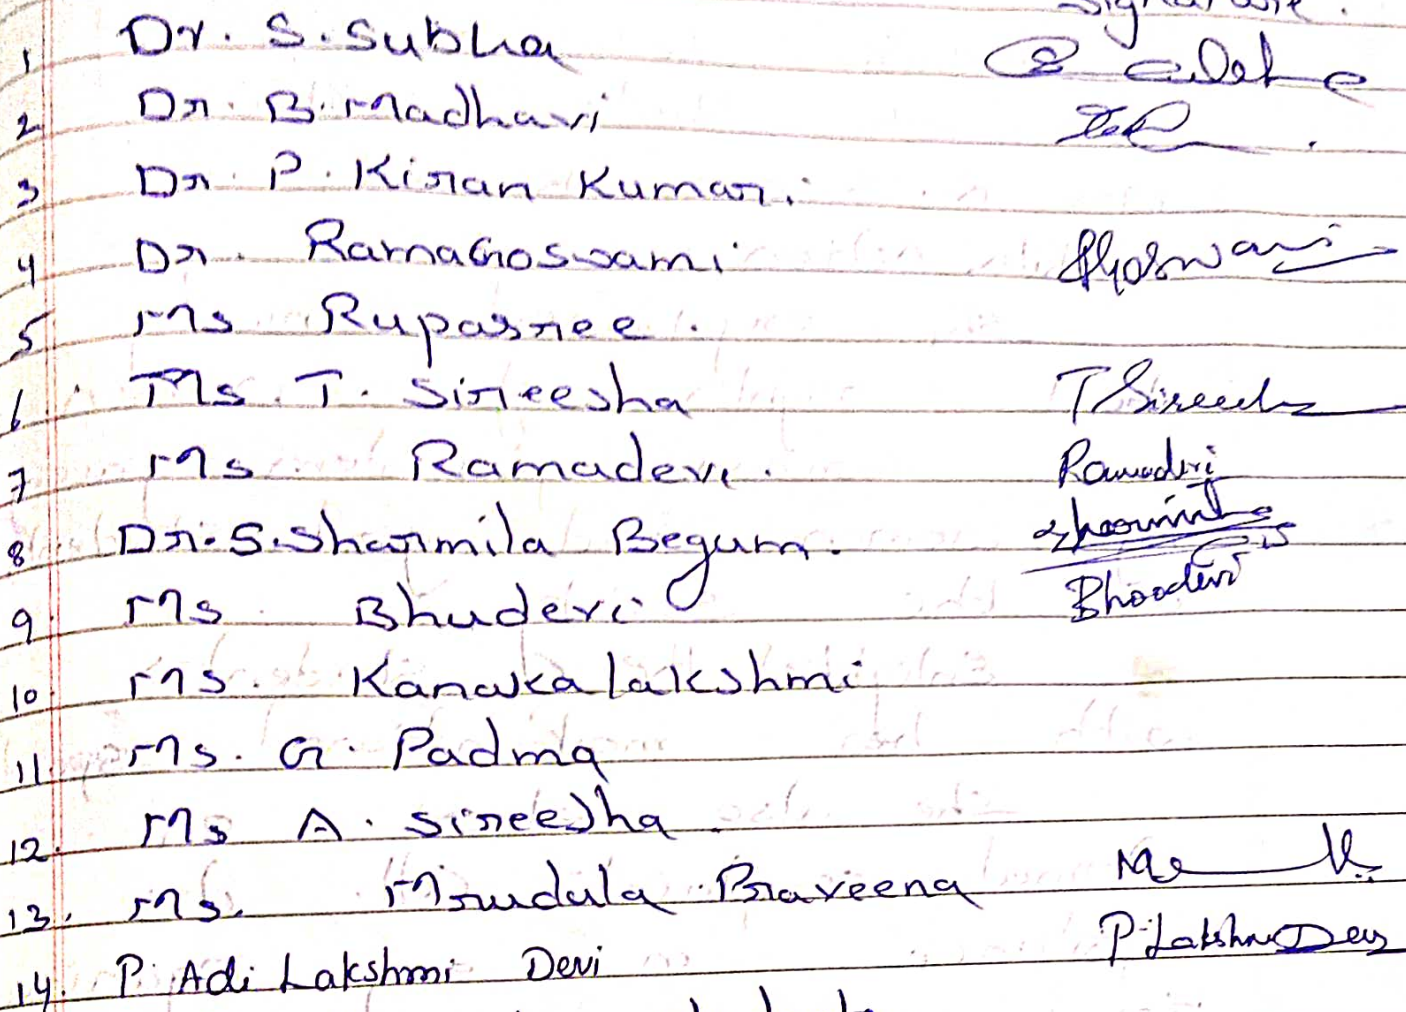 Signature.
1 Dr. S. Subha
2 Dr. B. Madhavi
3 Dr. P. Kiran Kumari
4 Dr. RamaGoswami Goswami
5 Ms Rupasree.
6. Ms. T. Sireesha T Sireesha
7 Ms. Ramadevi. Ramadevi
8 Dr. S. Sharmila Begum.
9 Ms Bhudevi Bhoodevi
10. Ms. Kanakalakshmi
11. Ms. G. Padma
12. Ms A. Sireesha.
13. Ms. Mrudula Praveena
14. P. Adi Lakshmi Devi P. Lakshmi Devi